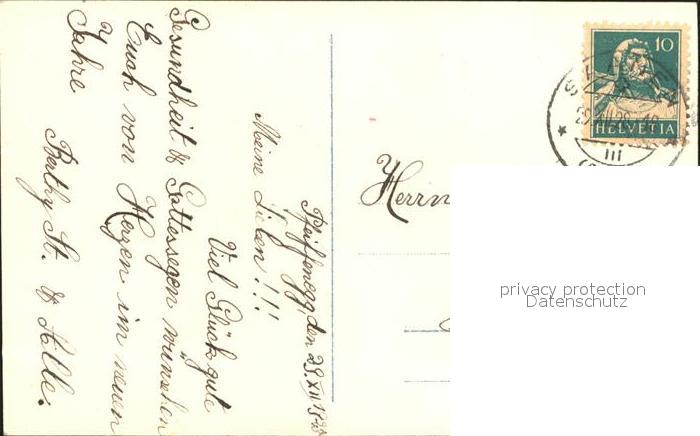 Pfeiffenegg, den 29. XII 1928
Meine Lieben!!!
Viel Glück gute
Gesundheit & Gottessegen wünschen
Euch von Herzen im neuen
Jahre
Bethy St. & Alle.
Herrn
10
HELVETIA
III
privacy protection
Datenschutz